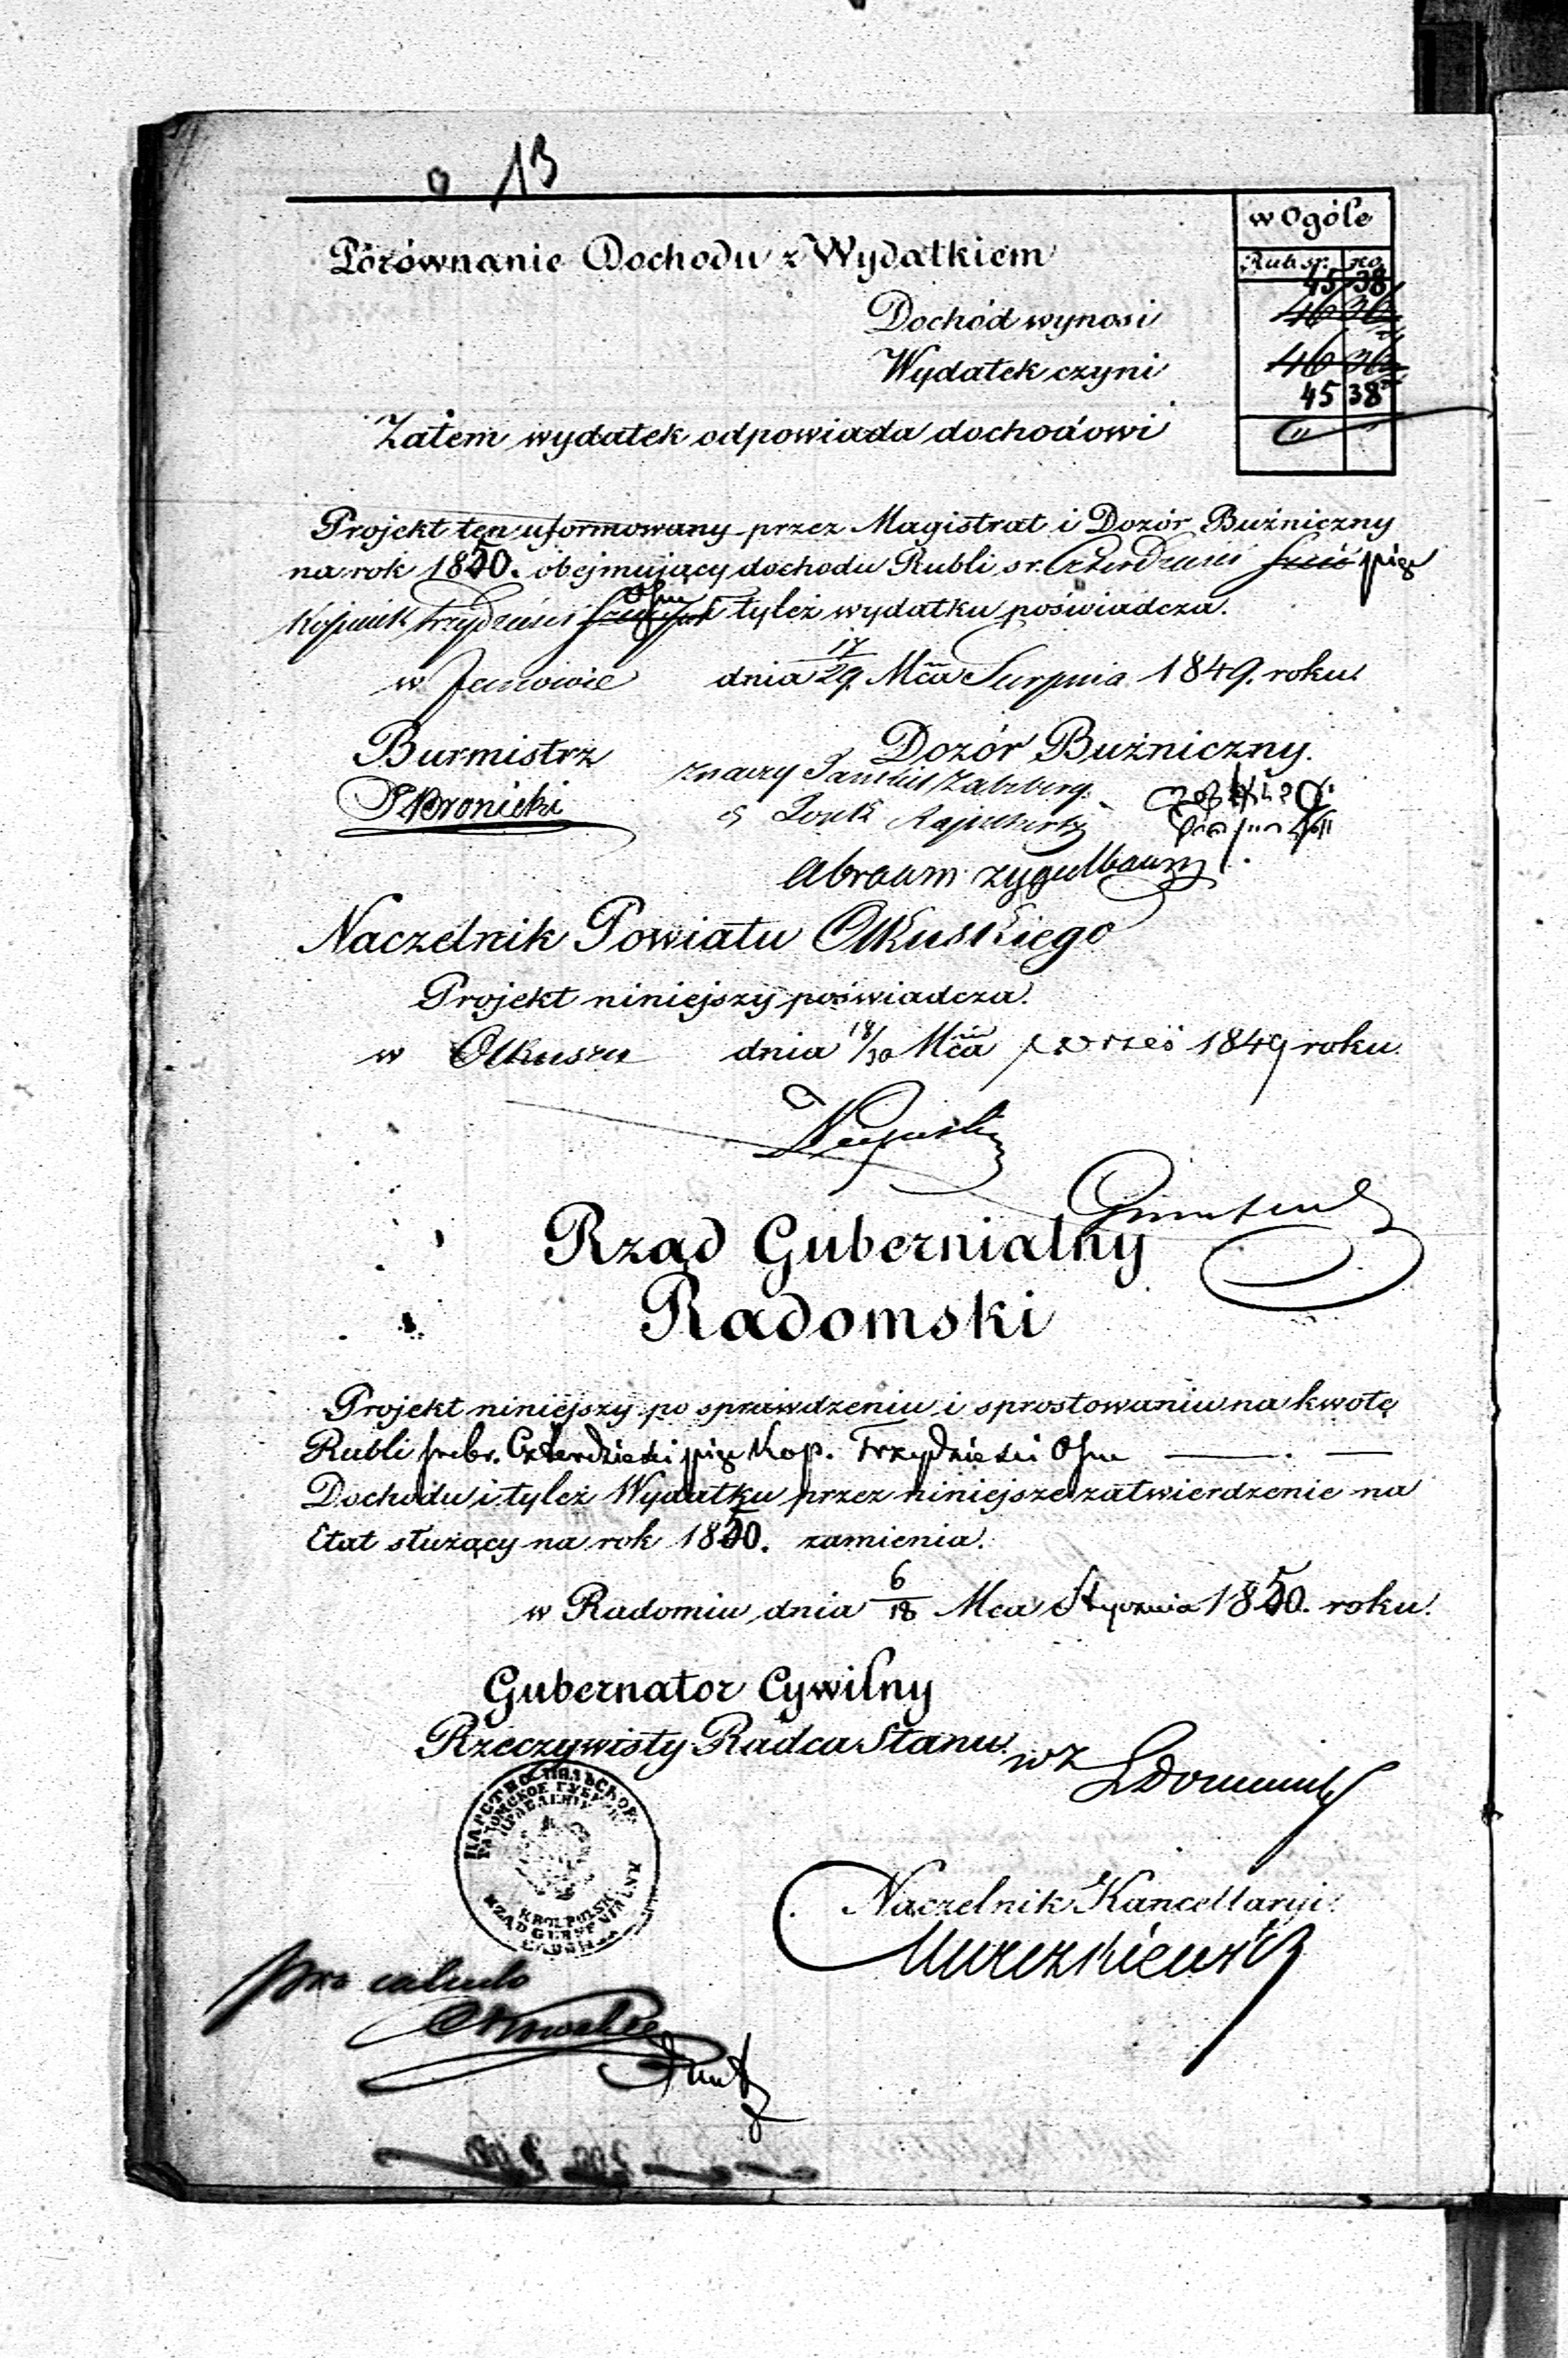 13
w Ogóle
Porównanie Dochodu z Wydatkiem
Rub sr. ko
45 38
Dochód wynosi 46 36
Wydatek czyni 46 36
45 38
Zatem wydatek odpowiada dochodowi " "
Projekt ten uformowany przez Magistrat i Dozór Bużniczny
na rok 1850. obejmujący dochodu Rubli sr. Czterdzieści sześć pięć
Kopiejek trzydzieści ośm tyleż wydatku poświadcza.
w Janowie dnia 17/29 Mca Sierpnia 1849. roku.
Burmistrz Dozór Bużniczny.
znaczy
Abraam zygielbaum
Naczelnik Powiatu Olkuskiego
Projekt niniejszy poświadcza.
w Olkuszu dnia 18/30 Mca 1849 roku.
Rząd Gubernialny
Radomski
Projekt niniejszy po sprawdzeniu i sprostowaniu na kwotę
Rubli srebr. Czterdzieści pięc Kop. Trzydzieści Ośm
Dochodu i tyleż Wydatku przez niniejsze zatwierdzenie na
Etat służący na rok 1850. zamienia.
w Radomiu dnia 6/18 Mca Stycznia 1850. roku.
Gubernator Cywilny
Rzeczywisty Radca Stanu.
wz
ЦАРСТВО ПОЛЬСКОЕ
РАДОМСКОЕ ГУБЕРН.
ПРАВЛЕНИЕ
KROL. POLSK.
RZĄD GUBERNIALNY
Naczelnik Kancellaryi.
pro calculo